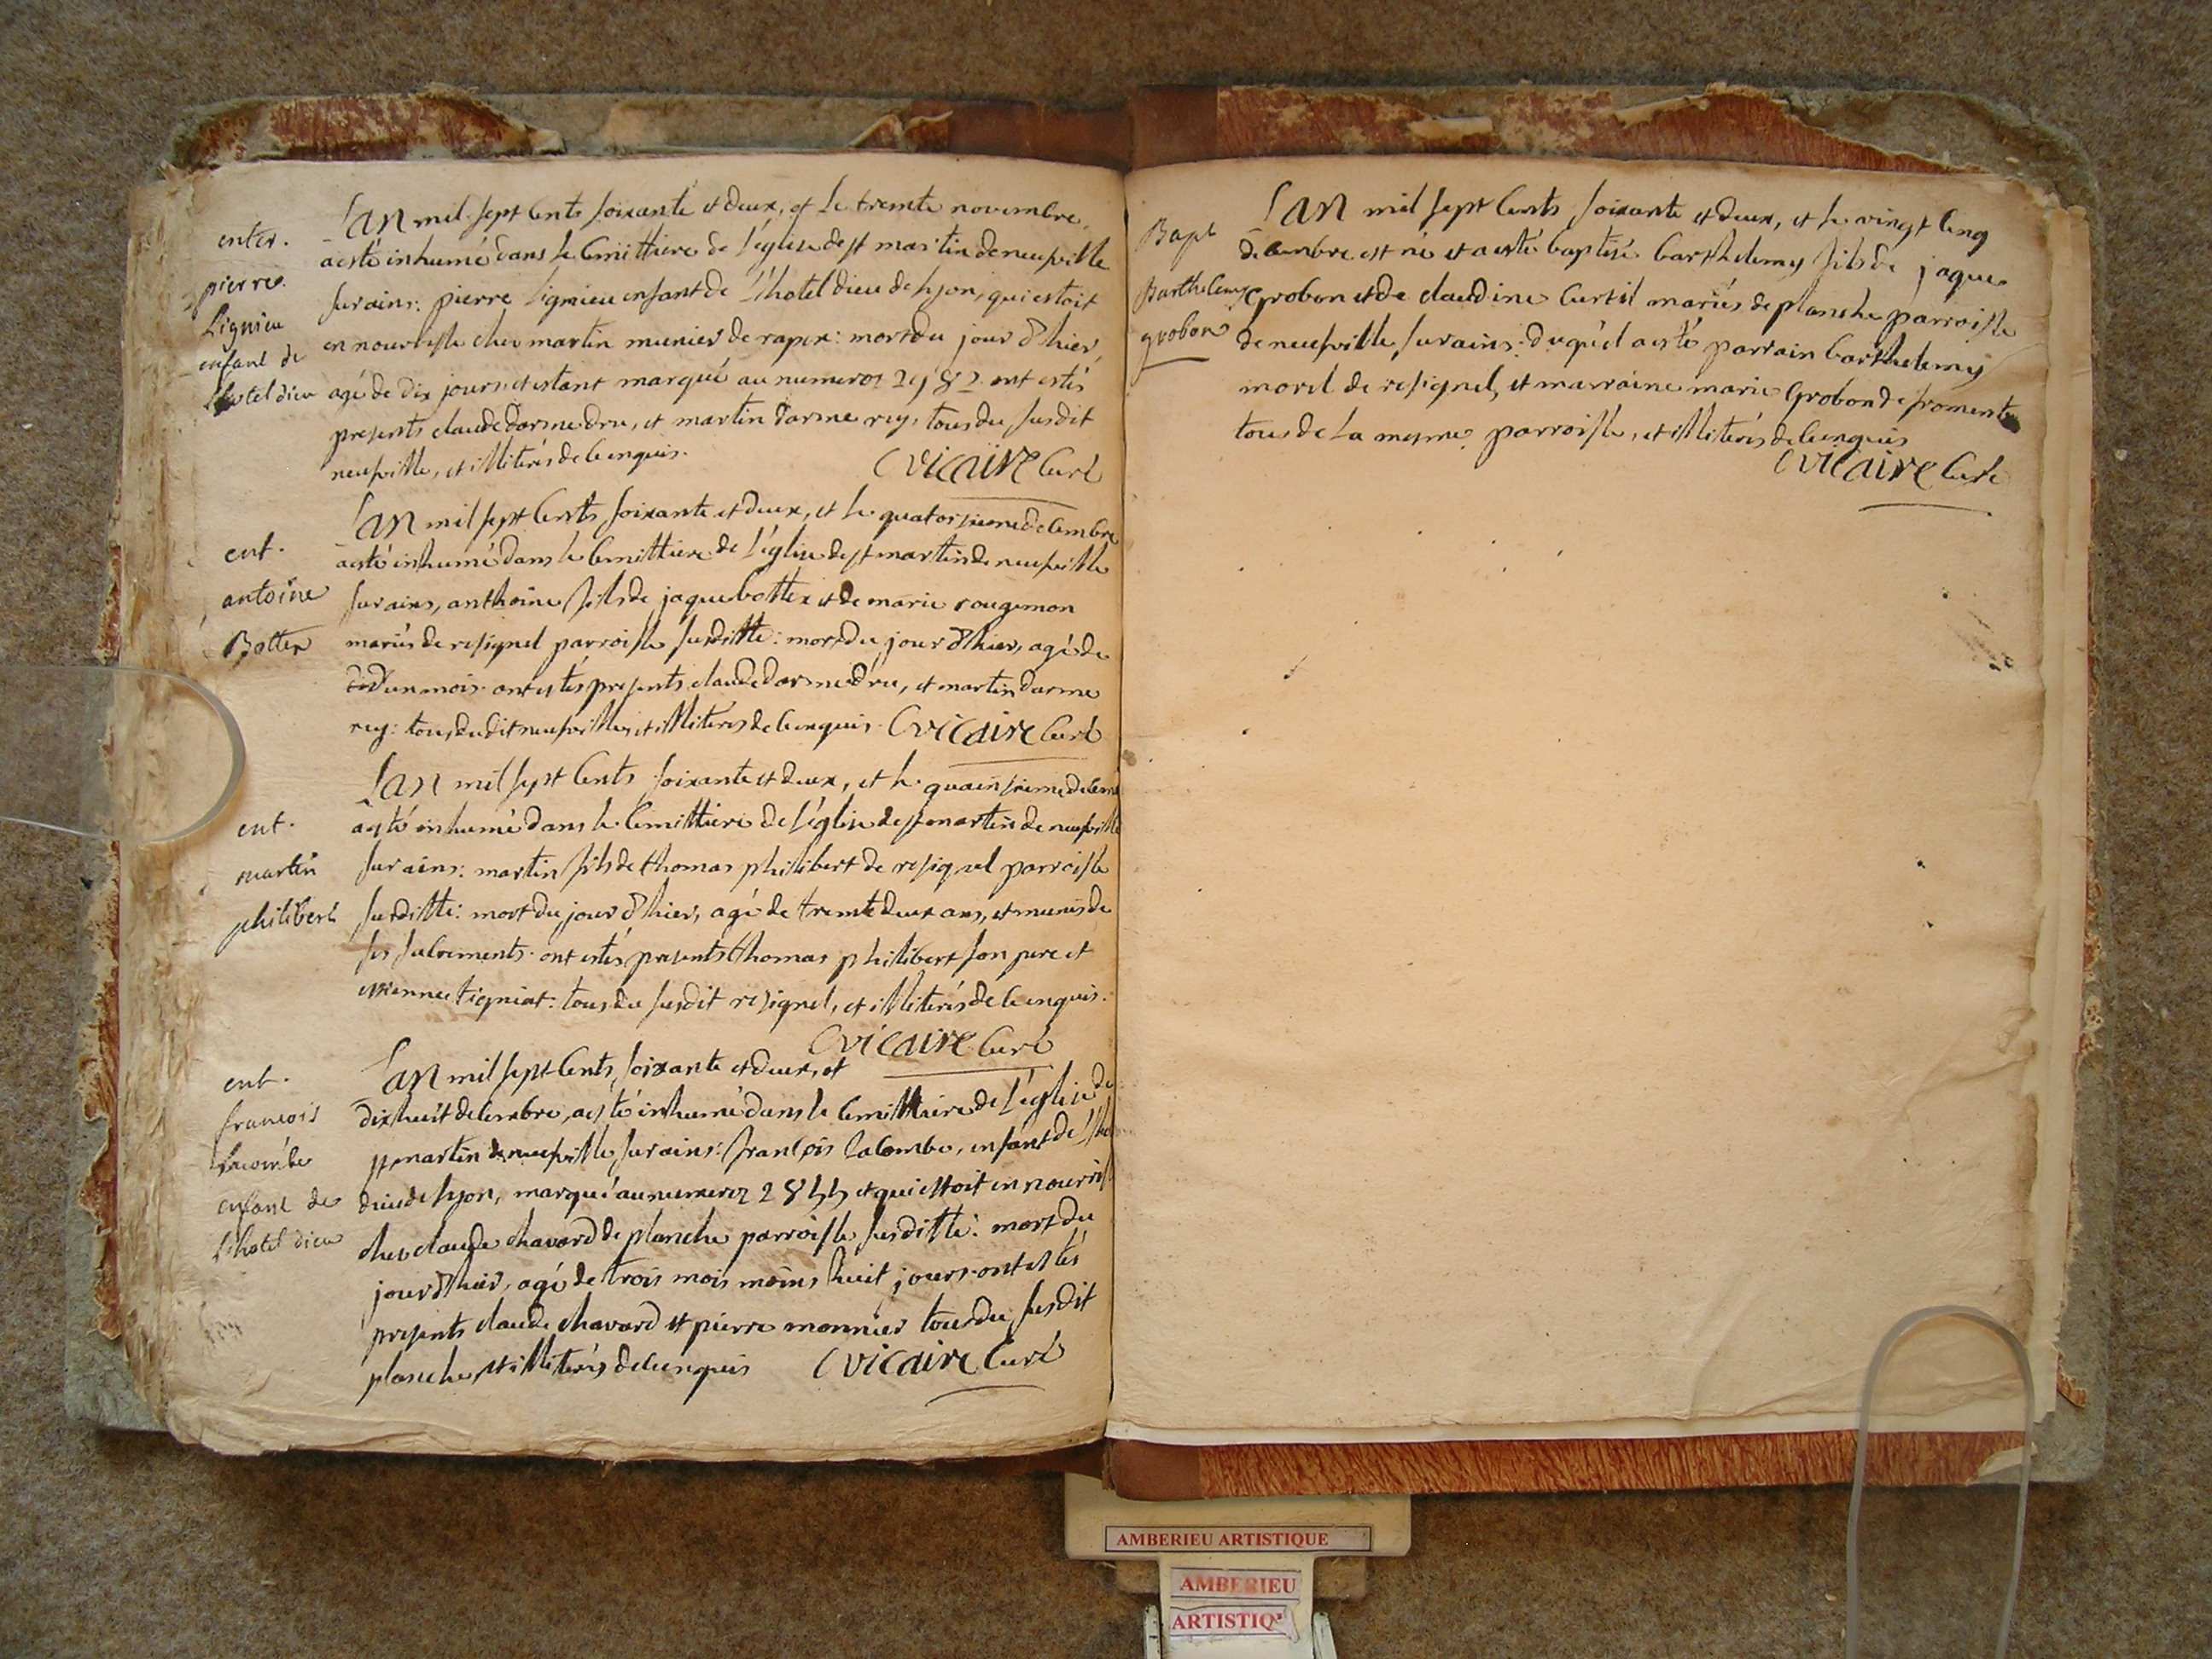 enter.
pierre
Lignieu
enfant de
L'hotel dieu
L'an mil sept cents soixante et deux, et le trente novembre
a esté inhumé dans le cimittiere de l'église de st martin de neufville
sur ains: pierre Lignieu enfant de L'hotel dieu de lyon, qui estoit
en nourrisse chez martin munier de rapex: mort du jour d'hier,
agé de dix jours, et estant marqué au numeror 2982. ont estés
presents claude darme dru, et martin darme rey, tous du susdit
neufville, et illiterés de ce enquis.
C vicaire Curé
ent.
antoine
Bottex
L'an mil sept cents soixante et deux, et le quatorzieme decembre
a esté inhumé dans le cimittiere de l'église de st martin de neufville
sur ains, anthoine fils de jaque bottex et de marie rougemon
mariés de resignel parroisse susditte: mort du jour d'hier, agé de
d'un mois. ont estés presents claude darme dru, et martin darme
rey: tous dudit neufville, et illiterés de ce enquis. C vicaire Curé
ent.
martin
philibert
L'an mil sept cents soixante et deux, et le quainsieme decem
a esté inhumé dans le cimittiere de l'église de st martin de neufville
sur ains: martin fils de thomas philibert de resignel parroisse
susditte: mort du jour d'hier, agé de trente deux ans, et munis de
ses sacrements. ont estés presents thomas philibert son pere et
estienne tigniat: tous du susdit resignel, et illiterés de ce enquis.
C vicaire Curé
ent.
francois
lacombe
enfant de
L'hotel dieu
L'an mil sept cents, soixante et deux, et
dixhuit decembre, a esté inhumé dans le cimittiere de l'église de
st martin de neufville sur ains: francois lacombe, enfant de l'ho
dieu de lyon, marqué au numeror 2855 et qui estoit en nourriss
chez claude chavard de planche parroisse susditte: mort du
jour d'hier, agé de trois mois moins huit jours. ont estés
presents claude chavard et pierre monnier tous du susdit
planche, et illiterés de ce enquis C vicaire Curé
Bapt
Barthelemy
grobon
L'an mil sept cents soixante et deux, et le vingt cinq
decembre est né et a esté baptisé barthelemy fils de jaque
Grobon et de claudine curtil mariés de planche parroisse
de neufville sur ains: duquel a esté parrain barthelemy
morel de resignel, et marraine marie Grobon de fromente
tous de la mesme parroisse, et illiterés de ce enquis
C vicaire Curé
AMBERIEU ARTISTIQUE
AMBERIEU
ARTISTIQ